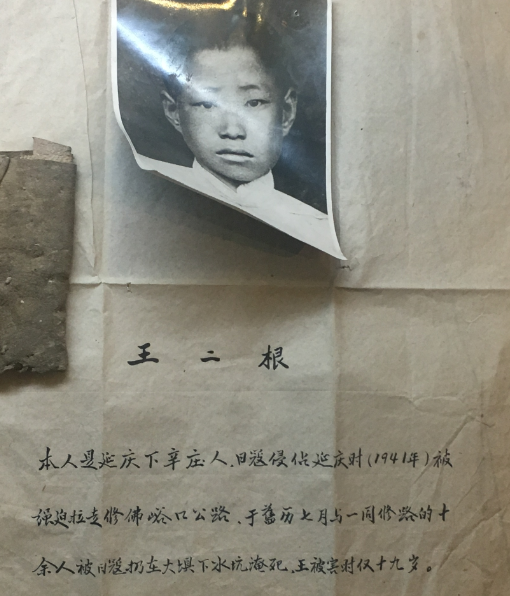 王二根
本人是延庆下辛庄人、日寇侵佔延庆时(1941年)被
强迫拉走修佛峪口公路、于舊历七月与一同修路的十
余人被日寇扔在大垻下水坑淹死,王被害时仅十九岁。